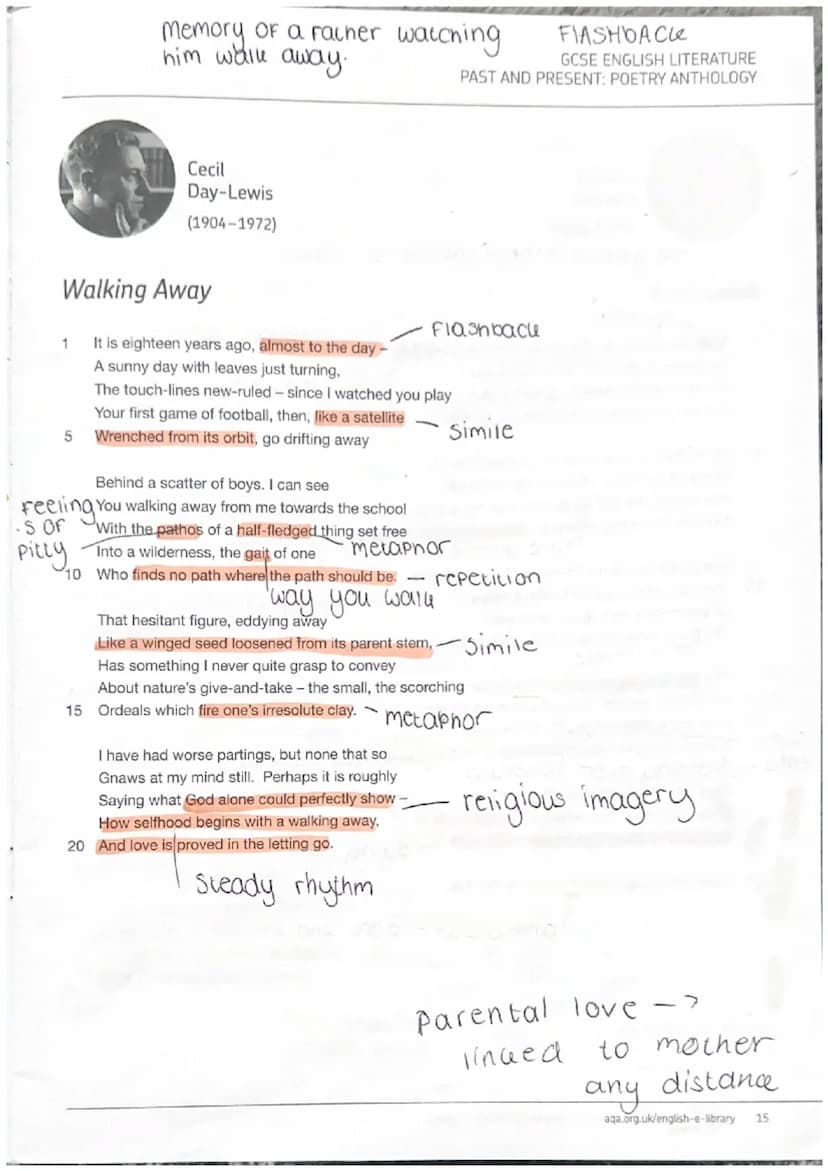 Memory of a father watching
him walk away.
Flashback
GCSE ENGLISH LITERATURE
PAST AND PRESENT: POETRY ANTHOLOGY
Cecil
Day-Lewis
(1904–1972)
Walking Away
1 It is eighteen years ago, almost to the day –
Flashback
A sunny day with leaves just turning,
The touch-lines new-ruled – since I watched you play
Your first game of football, then, like a satellite
simile
5 Wrenched from its orbit, go drifting away
Behind a scatter of boys. I can see
You walking away from me towards the school
feeling
.s of
pitty
With the pathos of a half-fledged thing set free
metaphor
Into a wilderness, the gait of one
10 Who finds no path where the path should be.
repetition
way you walk
That hesitant figure, eddying away
Like a winged seed loosened from its parent stem,
Simile
Has something I never quite grasp to convey
About nature's give-and-take – the small, the scorching
15 Ordeals which fire one's irresolute clay.
metaphor
I have had worse partings, but none that so
Gnaws at my mind still. Perhaps it is roughly
Saying what God alone could perfectly show –
religious imagery
How selfhood begins with a walking away,
20 And love is proved in the letting go.
Steady rhythm
parental love ->
linked to mother
any distance
aqa.org.uk/english-e-library 15